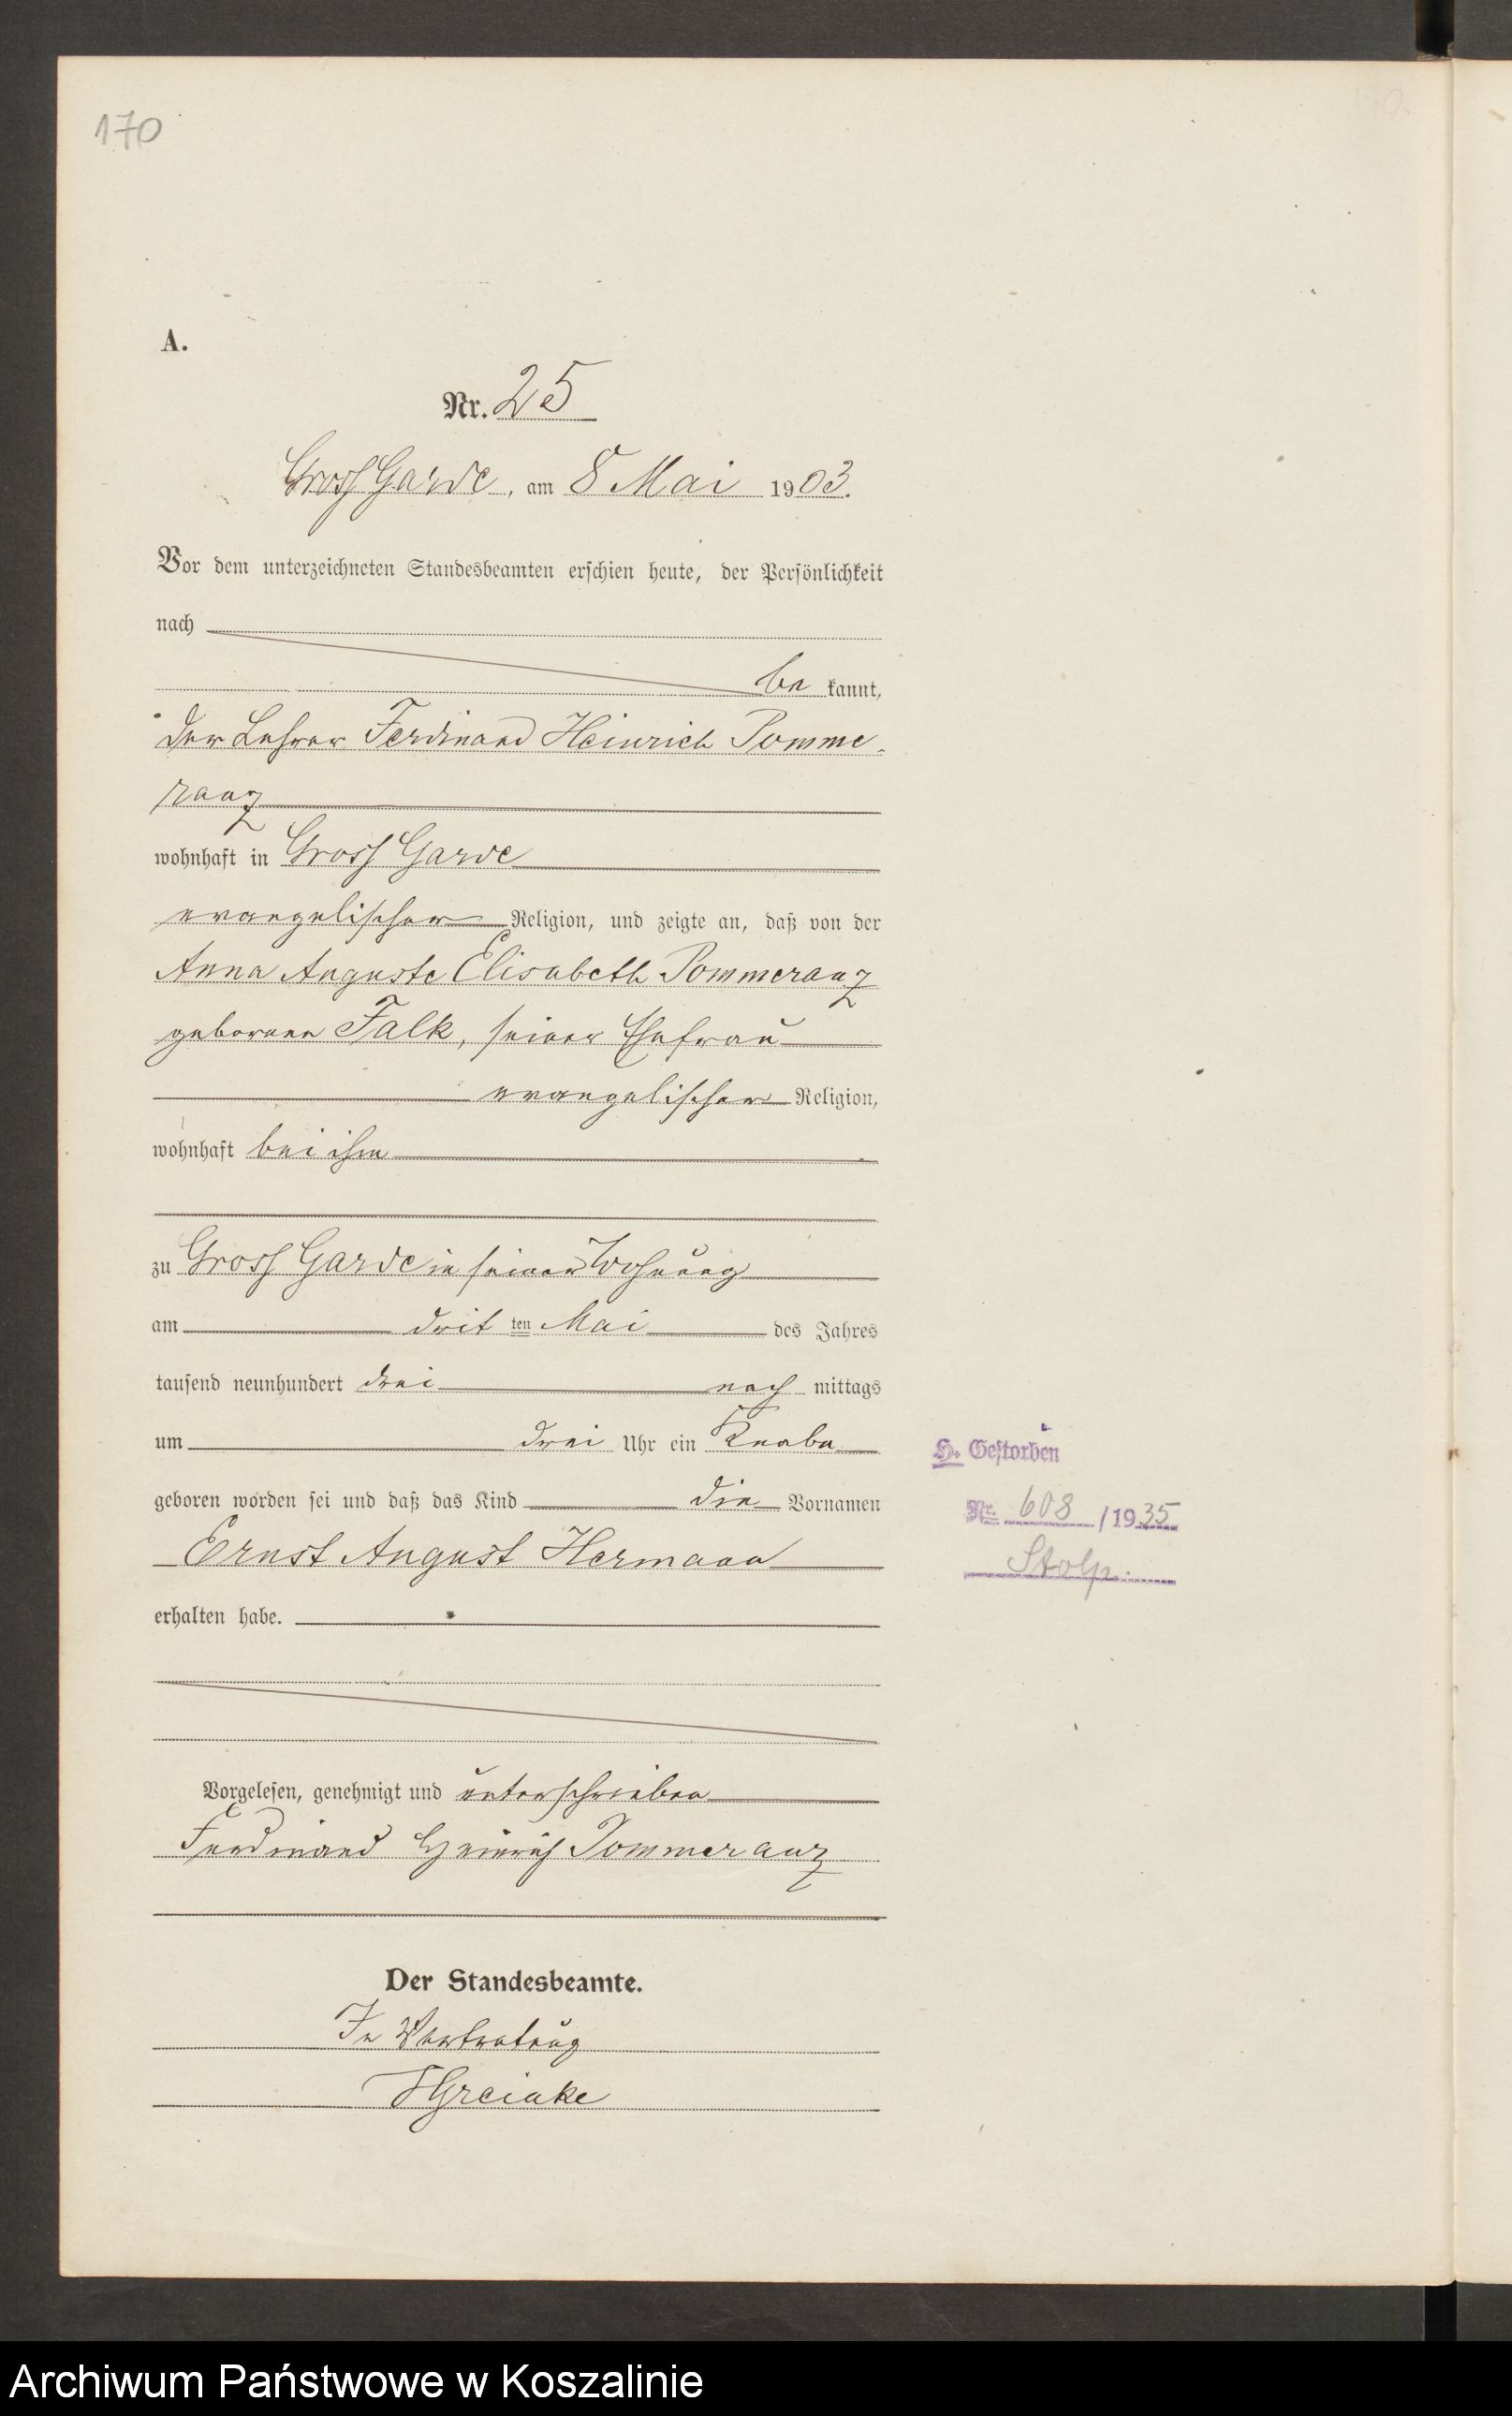 170
A.
Nr. 25
Gross Garde, am 8 Mai 1903.
Vor dem unterzeichneten Standesbeamten erschien heute, der Persönlichkeit
nach
be kannt,
der Lehrer Ferdinand Heinrich Pomme-
ranz
wohnhaft in Gross Garde
evangelischer Religion, und zeigte an, daß von der
Anna Auguste Elisabeth Pommeranz
geborenen Falk, seiner Ehefrau
evangelischer Religion,
wohnhaft bei ihm
zu Gross Garde in seiner Wohnung
am dritten Mai des Jahres
tausend neunhundert drei nach mittags
um drei Uhr ein Knabe
geboren worden sei und daß das Kind die Vornamen
Ernst August Hermann
erhalten habe.
Vorgelesen, genehmigt und unterschrieben
Ferdinand Heinrich Pommeranz
Der Standesbeamte.
In Vertretung
H. Gestorben
Nr. 608 /1935
Stolp.
Archiwum Państwowe w Koszalinie